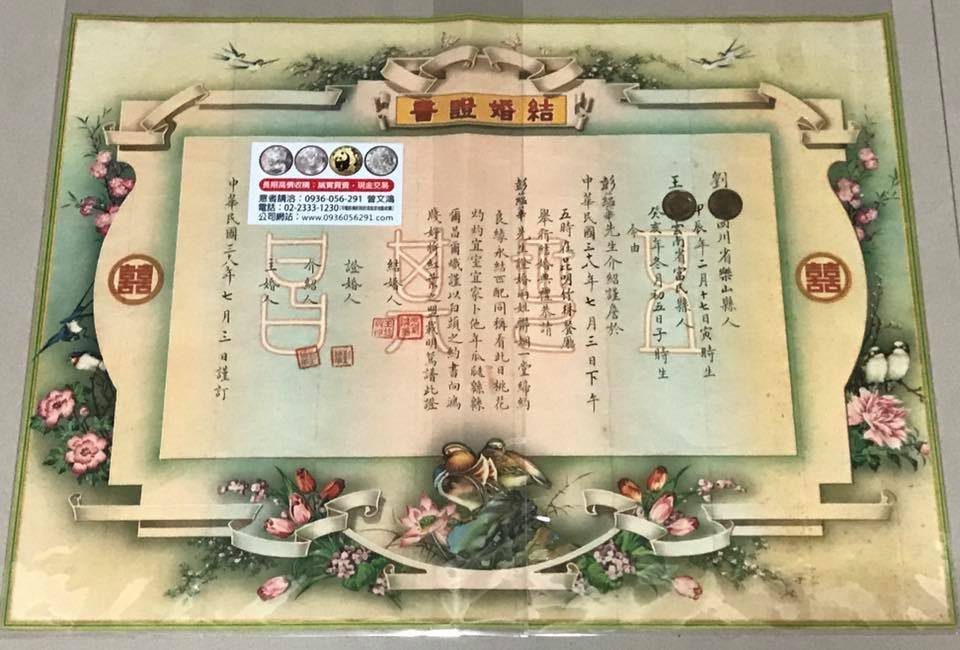 結婚證書
劉 四川省樂山縣人
甲辰年二月十七日寅時生
王 雲南省富民縣人
癸亥年冬月初五日子時生
今由
彭蘊華先生介紹謹詹於
中華民國三十八年七月三日下午
五時在昆明竹林餐廳
舉行結婚典禮恭請
彭蘊華先生證婚兩姓聯姻一堂締約
良緣永結匹配同稱看此日桃花
灼灼宜室宜家卜他年瓜瓞緜緜
爾昌爾熾謹以白頭之約書向鴻
箋好將紅葉之盟載明鴛譜此證
結婚人
證婚人
介紹人
主婚人
中華民國三八年七月三日謹訂
長期高價收購：誠實買賣，現金交易
意者請洽：0936-056-291 曾文鴻
電話：02-2333-1230
公司網站：www.0936056291.com
囍
囍